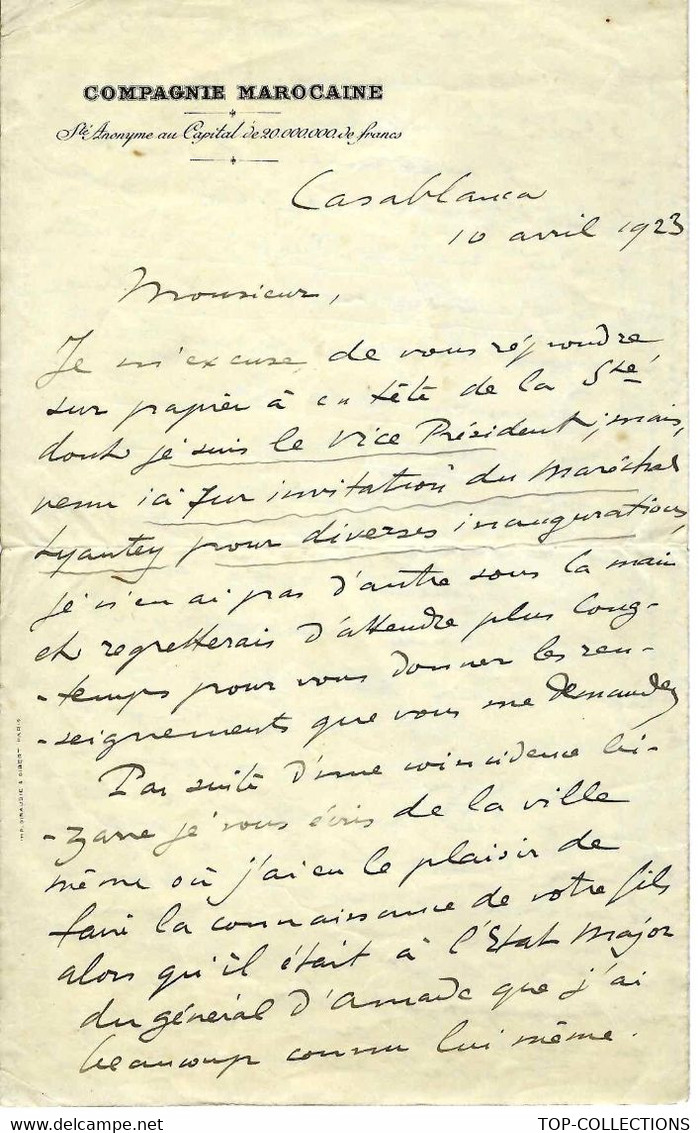 COMPAGNIE MAROCAINE
Sté Anonyme au Capital de 20.000.000 de francs
Casablanca
10 avril 1923
Monsieur,
Je m'excuse de vous répondre
sur papier à en tête de la Sté
dont je suis le Vice Président ; mais,
venu ici sur invitation du Maréchal
Lyautey pour diverses inaugurations,
je n'en ai pas d'autre sous la main
et regretterais d'attendre plus long-
-temps pour vous donner les ren-
-seignements que vous me demandez
Par suite d'une coincidence bi-
-zarre je vous écris de la ville
même où j'ai eu le plaisir de
faire la connaissance de votre fils
alors qu'il était à l'Etat Major
du général d'Amade que j'ai
beaucoup connu lui même.
IMP. GIRAUDIE & GIBERT PARIS
TOP-COLLECTIONS